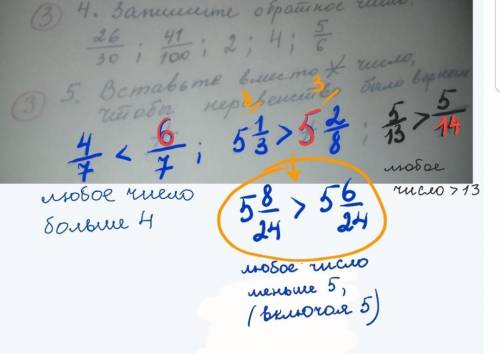 ③ 4. Запишите обратное число:
26/30 ; 41/100 ; 2 ; 4 ; 5/6
③ 5. Вставьте вместо * число,
чтобы неравенство было верным
8 3
4/7 < 6/7 ; 5 1/3 > 5 2/8 ; 5/13 > 5/14
любое число
больше 4
5 8/24 > 5 6/24
любое
число > 13
любое число
меньше 5,
(включая 5)